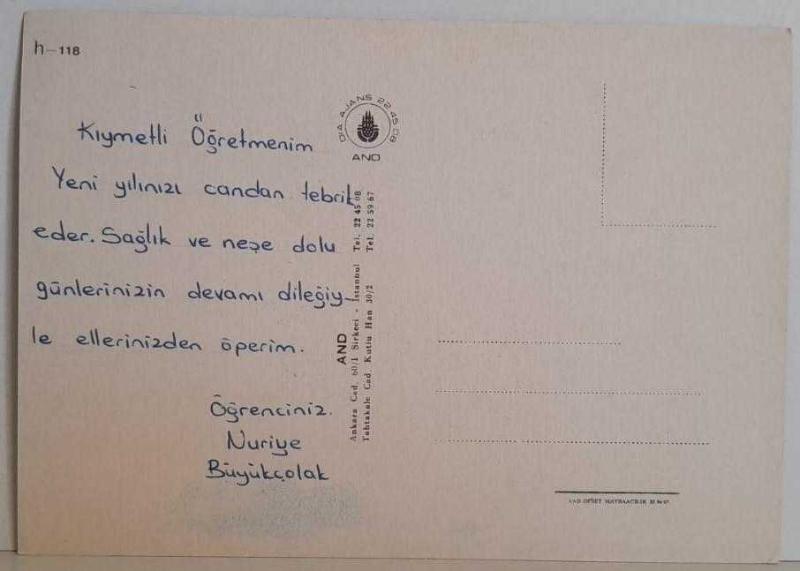 h-118
Kıymetli Öğretmenim
Yeni yılınızı candan tebrik
eder. Sağlık ve neşe dolu
günlerinizin devamı dileğiy-
le ellerinizden öperim.
Öğrenciniz.
Nuriye
Büyükçolak
DİA AJANS 22 45 08
AND
AND
Ankara Cad. 60/1 Sirkeci - İstanbul Tel. 22 45 08
Tahtakale Cad. Kutlu Han 30/2 Tel. 22 59 67
OFSET MATBAACILIK